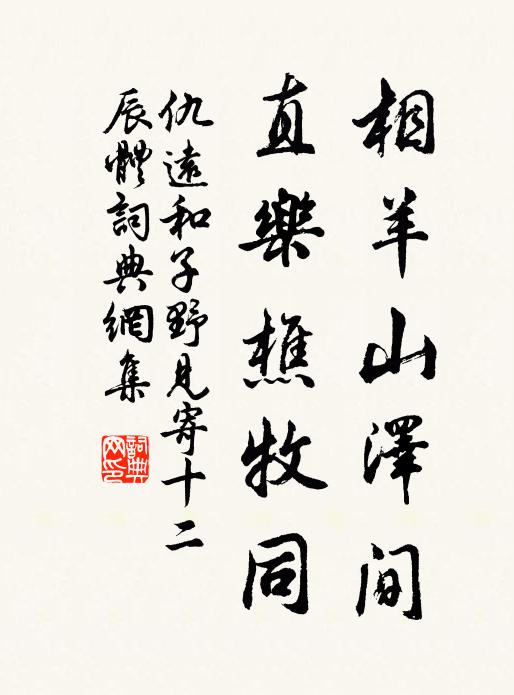 相羊山澤间
直樂樵牧同
仇遠和子野見寄十二
辰體詞典網集
詞典
网印